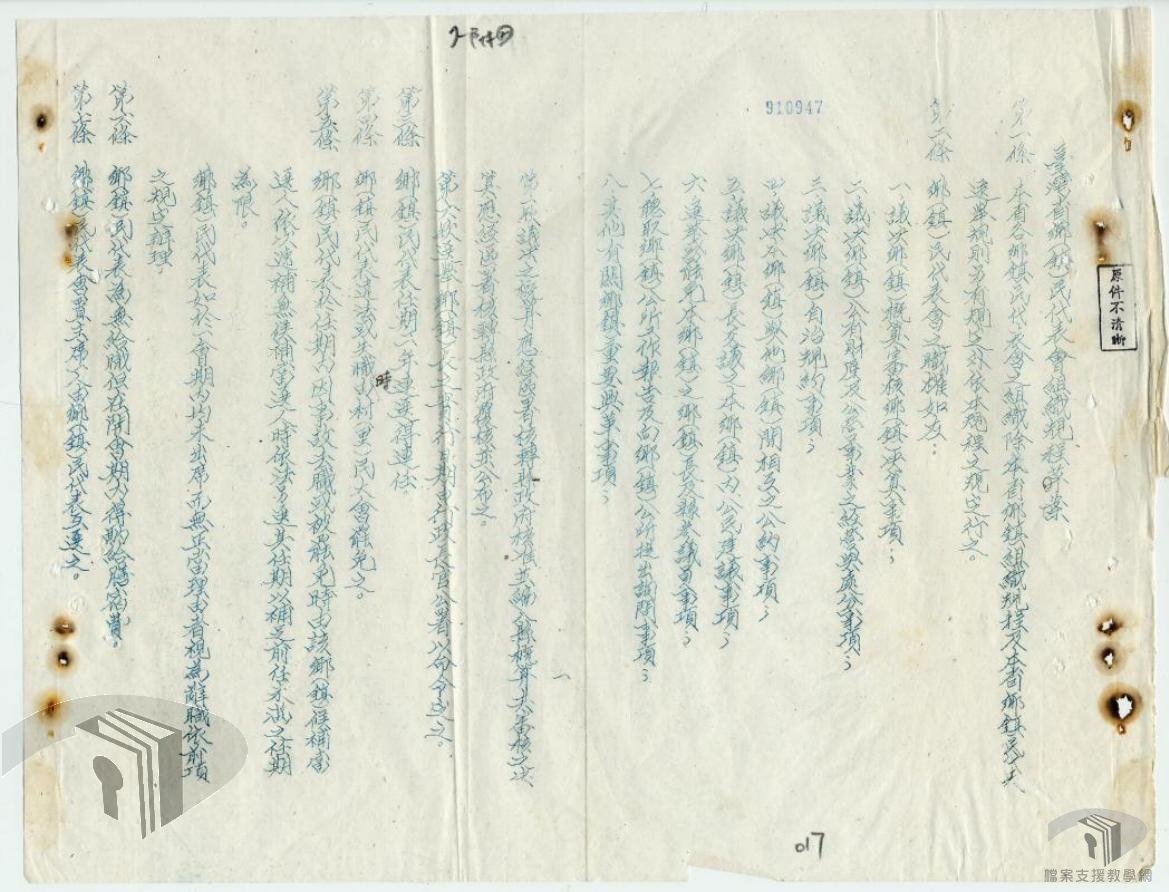 2-附件四
910947
臺灣省鄉(鎮)民代表會組織規程草案
第一條 本省各鄉鎮民代表會之組織除本省鄉鎮組織規程及本省鄉鎮民代表
選舉規則另有規定外依本規程之規定行之。
第二條 鄉(鎮)民代表會之職權如左:
一議決鄉(鎮)概算審核鄉(鎮)決算事項;
二議決鄉(鎮)公有財產及公營事業之經營與處分事項;
三議決鄉(鎮)自治規約事項;
四議決本鄉(鎮)與他鄉(鎮)間相互之公約事項;
五議決鄉(鎮)長交議及本鄉(鎮)內公民建議事項;
六選舉或罷免本鄉(鎮)之鄉(鎮)長及縣參議員事項;
七聽取鄉(鎮)公所工作報告及向鄉(鎮)公所提出詢問事項;
八其他有關鄉(鎮)重要興革事項;
第一款議決之概算應經區署核轉縣政府核准並編入縣概算其審核之決
算應經區署核轉縣政府覆核並公布之。
第六款選舉鄉(鎮)長之實行日期由行政長官公署以命令定之。
第三條 鄉(鎮)民代表任期二年連選得連任
第四條 鄉(鎮)民代表違法或失職時由村(里)民大會罷免之。
第五條 鄉(鎮)民代表於任期內因事故去職或被罷免時由該鄉(鎮)候補當
選人依次遞補無候補當選人時依法另選其任期以補足前任未滿之任期
為限。
鄉(鎮)民代表如於一會期內均未出席而無正當理由者視為辭職依前項
之規定辦理。
第六條 鄉(鎮)民代表為無給職但在開會期內得酌給膳宿費。
第七條 鄉(鎮)民代表會置主席一人由鄉(鎮)民代表互選之。
一
原件不清晰
017
檔案支援教學網